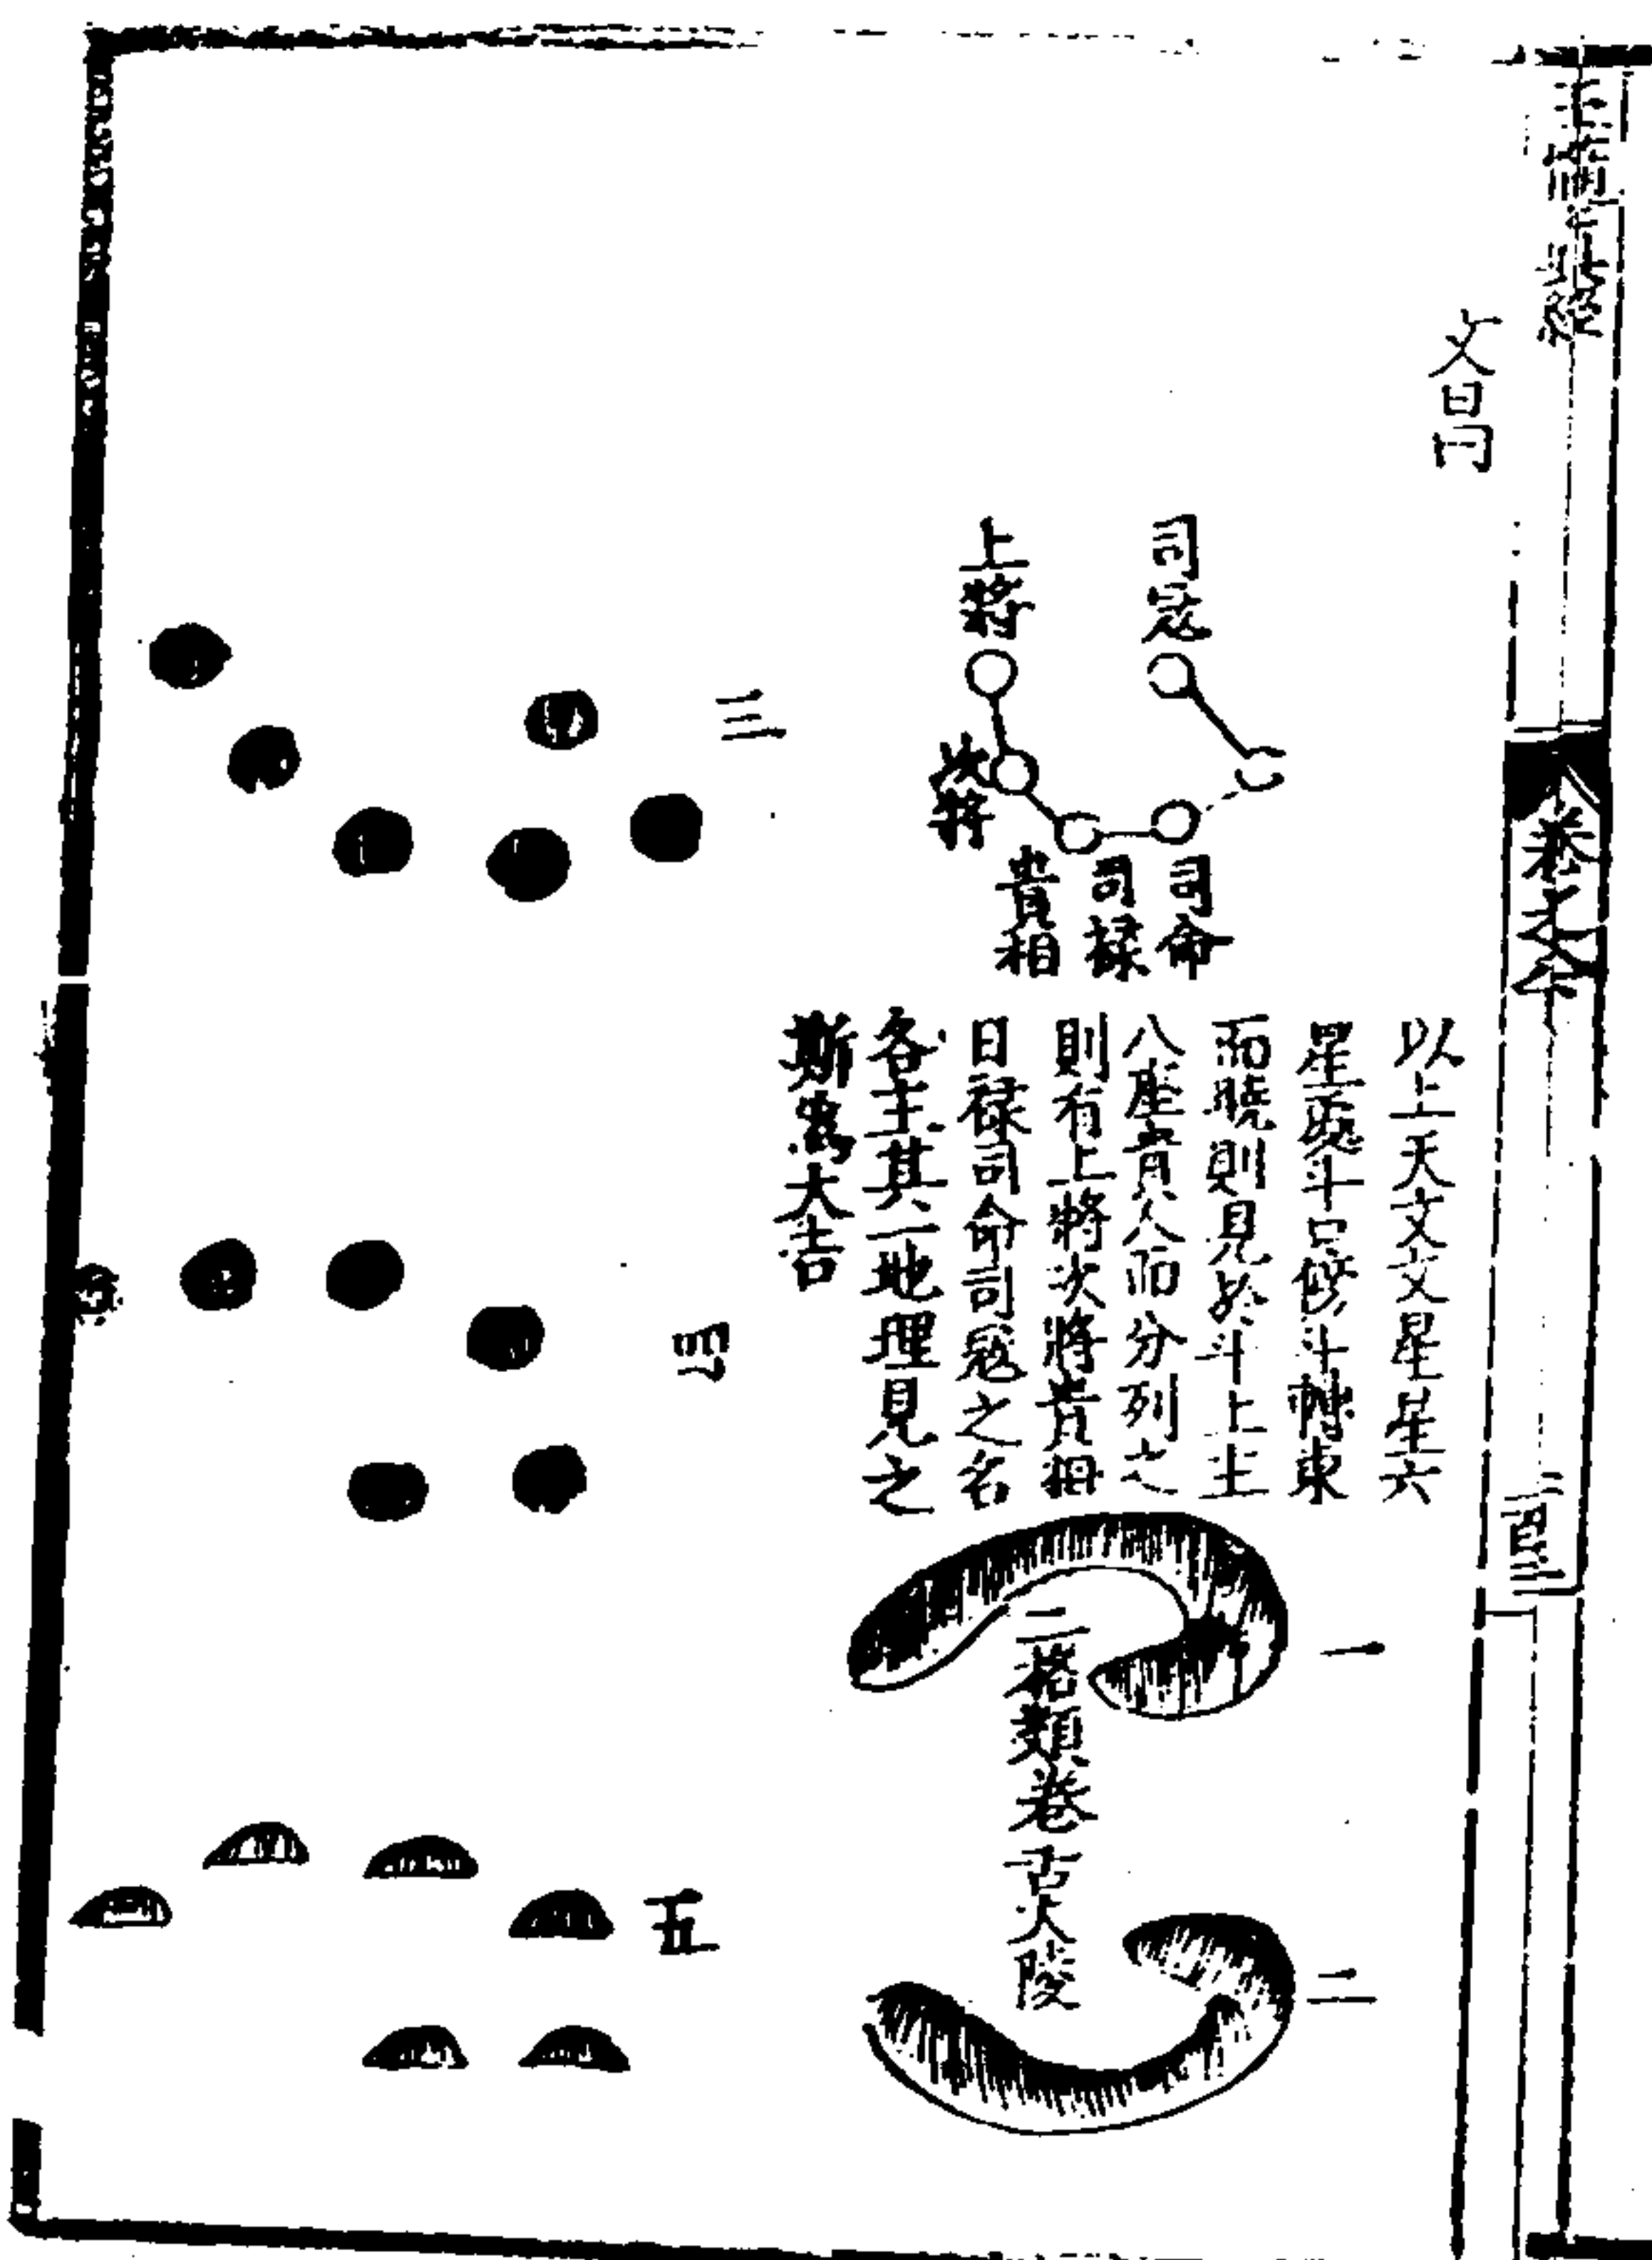 文曰門
司冦
上將
次將
貴相
司祿
司命
以上天文文星星六
星處斗口傍斗轉東
而曉則見於斗上主
八座貴人而分列之
則有上將次將貴相
曰禄司命司冦之名
各主其一地理見之
斯為大吉
一
二格類卷舌大陵
二
三
四
五